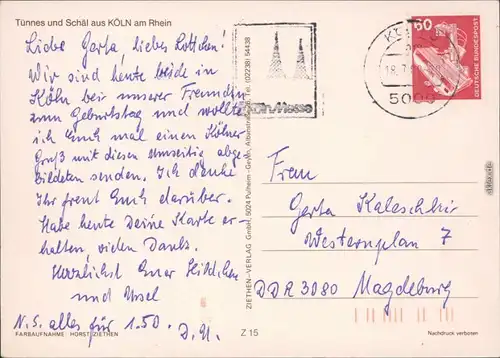 Tünnes und Schäl aus KÖLN am Rhein
Liebe Gerta liebes Lottchen!
Wir sind heute beide in
Köln bei unserer Freundin
zum Geburtstag und wollte
ich Euch mal einen Kölner
Gruß mit diesen Umseitig abge
bildeten senden. Ich denke
Ihr freut Euch darüber.
Habe heute Deine Karte er-
halten, vielen Dank.
Herzlichst Euer Hildchen
und Ursel
N.S. alles für 1.50. D. U.
FARBAUFNAHME: HORST ZIETHEN
ZIETHEN-VERLAG GmbH, 5024 Pulheim - Tel. (02238) 54438
Z 15
Köln/Messe
5000
60
DEUTSCHE BUNDESPOST
Frau
Gerta
Westernplan 7
DDR 3080 Magdeburg
Nachdruck verboten